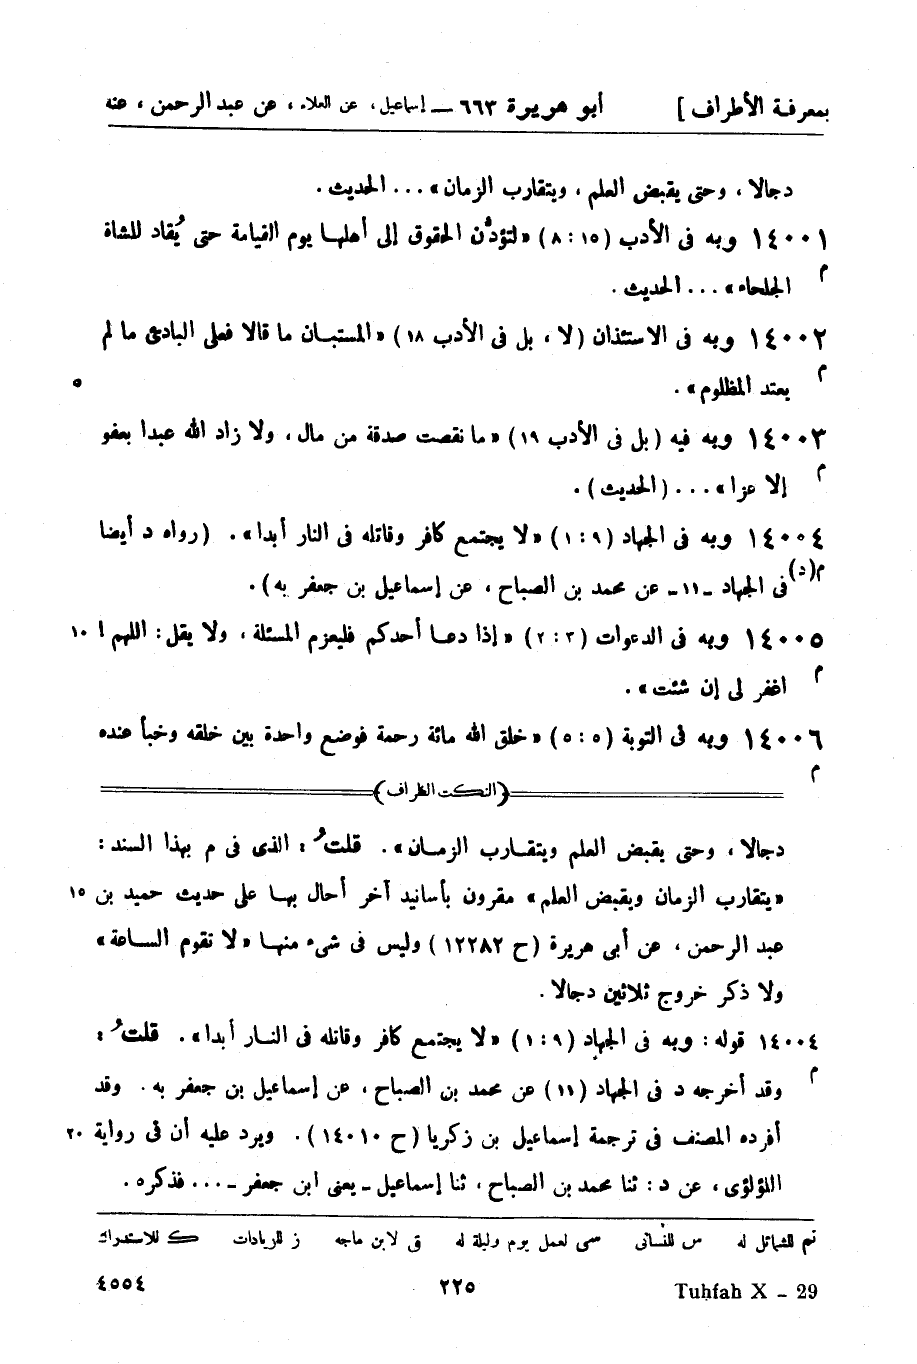 بمعرفة الأطراف ] أبو هريرة ٦٦٣ — إسماعيل، عن العلاء، عن عبد الرحمن، عنه
دجالا، وحتى يقبض العلم، ويتقارب الزمان» ... الحديث.
١٤٠٠١ وبه فى الأدب (١٥ : ٨) «لتؤدُّن الحقوق إلى أهلها يوم القيامة حتى يُقاد للشاة
م الجلحاء» ... الحديث.
١٤٠٠٢ وبه فى الاستئذان (لا، بل فى الأدب ١٨) «المستبان ما قالا فعلى البادئ ما لم
م يعتد المظلوم». ٥
١٤٠٠٣ وبه فيه (بل فى الأدب ١٩) «ما نقصت صدقة من مال، ولا زاد الله عبدا بعفو
م إلا عزا» ... (الحديث).
١٤٠٠٤ وبه فى الجهاد (٩ : ١) «لا يجتمع كافر وقاتله فى النار أبدا». (رواه د أيضا
م(د) فى الجهاد -١١- عن محمد بن الصباح، عن إسماعيل بن جعفر به).
١٤٠٠٥ وبه فى الدعوات (٣ : ٢) «إذا دعا أحدكم فليعزم المسئلة، ولا يقل: اللهم! ١٠
م اغفر لى إن شئت».
١٤٠٠٦ وبه فى التوبة (٥ : ٥) «خلق الله مائة رحمة فوضع واحدة بين خلقه وخبأ عنده
م
(النكت الظراف)
دجالا، وحتى يقبض العلم ويتقارب الزمان». قلتُ: الذى فى م بهذا السند:
«يتقارب الزمان ويقبض العلم» مقرون بأسانيد آخر أحال بها على حديث حميد بن ١٥
عبد الرحمن، عن أبى هريرة (ح ١٢٢٨٢) وليس فى شىء منها «لا تقوم الساعة»
ولا ذكر خروج ثلاثين دجالا.
١٤٠٠٤ قوله: وبه فى الجهاد (٩ : ١) «لا يجتمع كافر وقاتله فى النار أبدا». قلتُ:
م وقد أخرجه د فى الجهاد (١١) عن محمد بن الصباح، عن إسماعيل بن جعفر به. وقد
أفرده المصنف فى ترجمة إسماعيل بن زكريا (ح ١٤٠١٠). ويرد عليه أن فى رواية ٢٠
اللؤلؤى، عن د: ثنا محمد بن الصباح، ثنا إسماعيل - يعنى ابن جعفر - ... فذكره.
تم للشمائل له س للنسائى سى لعمل يوم وليلة له ق لابن ماجه ز للزيادات ك للاستدراك
Tuḥfah X - 29 ٢٢٥ ٤٥٥٤